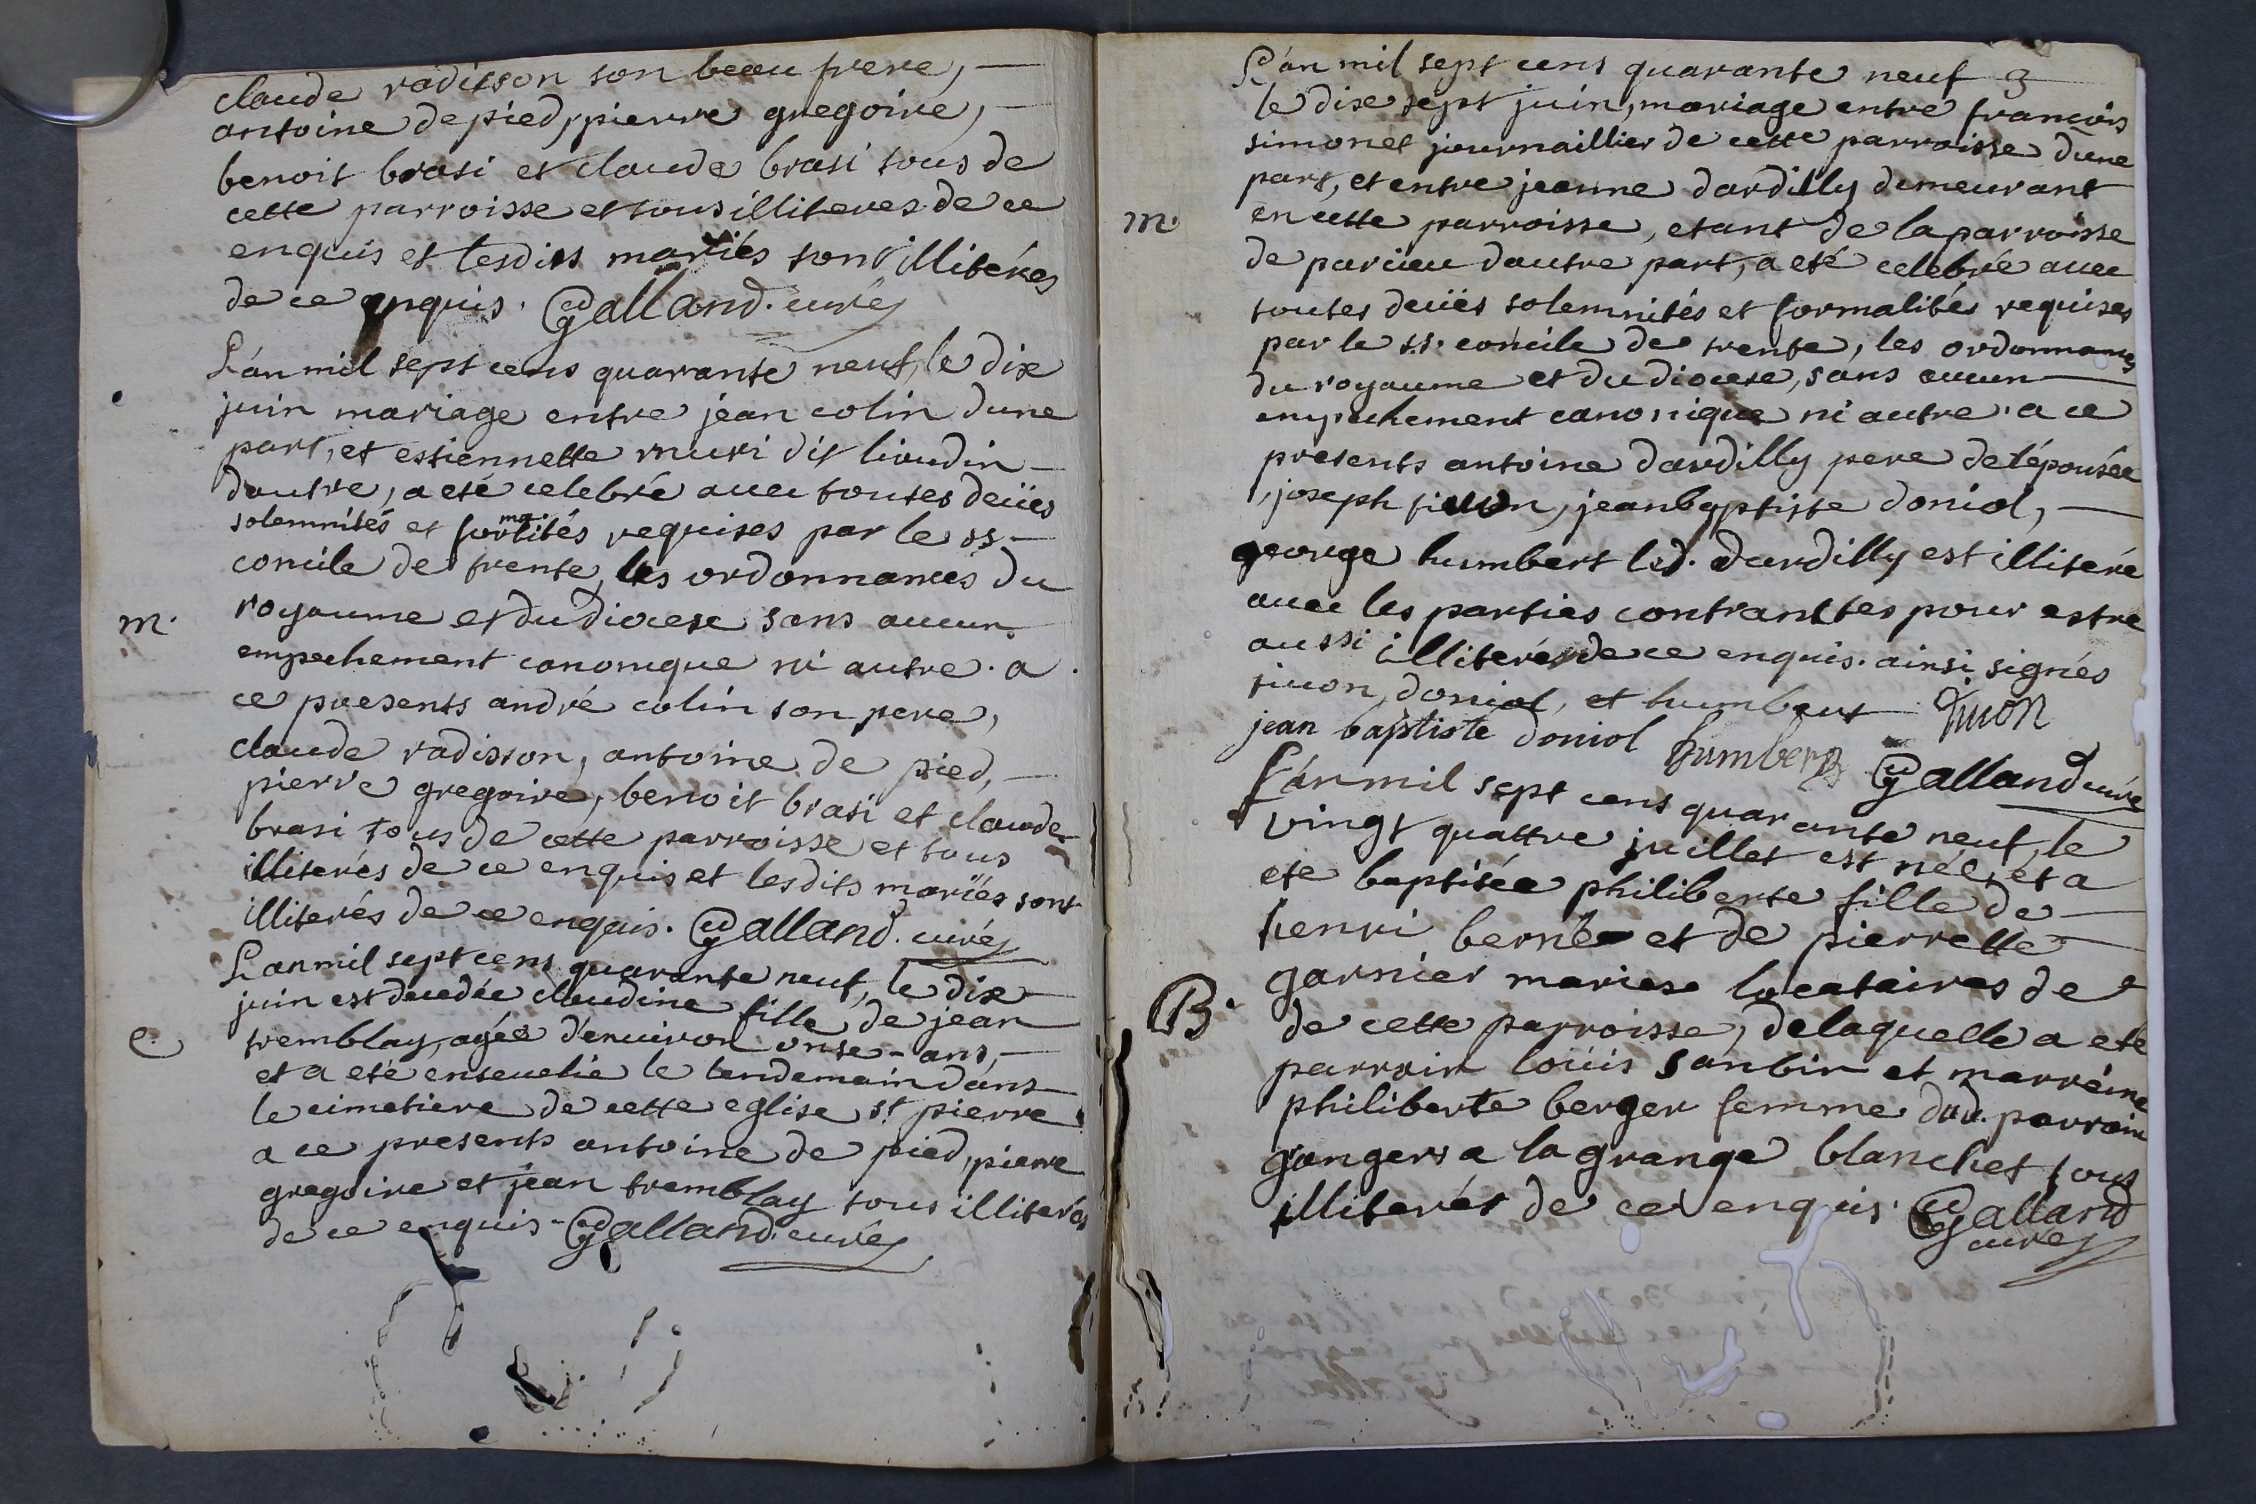 claude radisson son beau frere,
antoine de pied, pierre gregoire,
benoit brasi et claude brasi tous de
cette parroisse et tous illiteres de ce
enquis et lesdits mariés sont illitéres
de ce enquis. Galland. curé
L'án mil sept cens quarante neuf, le dix
juin mariage entre jean colin dune
part, et estiennette muri dit
dautre, a eté celebré avec toutes deües
solemnités et formalités requises par le ss
concile de trente, les ordonnances du
m. royaume et du diocese sans aucun
empechement canonique ni autre. a
ce presents andré colin son pere,
claude radisson, antoine de pied,
pierre gregoire, benoit brasi et claude
brasi tous de cette parroisse et tous
illiterés de ce enquis et lesdits mariés sont
illiterés de ce enquis. Galland. curé
L'an mil sept cens quarante neuf, le dix
juin est decedée claudine fille de jean
e. tremblay, agée d'environ onse ans,
et a eté ensevelie le lendemain dans
le cimetiere de cette eglise st pierre
a ce presents antoine de pied, pierre
gregoire et jean tremblay tous illiterés
de ce enquis. Galland. curé
L'án mil sept cens quarante neuf 3
le dix sept juin, mariage entre francois
simonet journaillier de cette parroisse dune
part, et entre jeanne dardilly demeurant
m. en cette parroisse, etant de la parroisse
de parcieu dautre part, a eté celebré avec
toutes deües solemnités et formalités requises
par le st. concile de trente, les ordonnances
du royaume et du diocese, sans aucun
empechement canonique ni autre. a ce
presents antoine dardilly pere de l'épousée
, joseph jean baptiste doniol,
george humbert led. dardilly est illiteré
avec les parties contrantes pour estre
aussi illiterés de ce enquis. ainsi signés
doniol, et humbert
jean baptiste doniol humbert Galland curé
L'án mil sept cens quarante neuf, le
vingt quattre juillet est née, et a
ete baptisée philiberte fille de
henri berne et de pierrette
garnier maries locataires de
B. de cette parroisse, de laquelle a eté
parrain loüis sanbin et marréine
philiberte berger femme dud. parrain
grangers a la grange blanchet tous
illiterés de ce enquis. Galland
curé